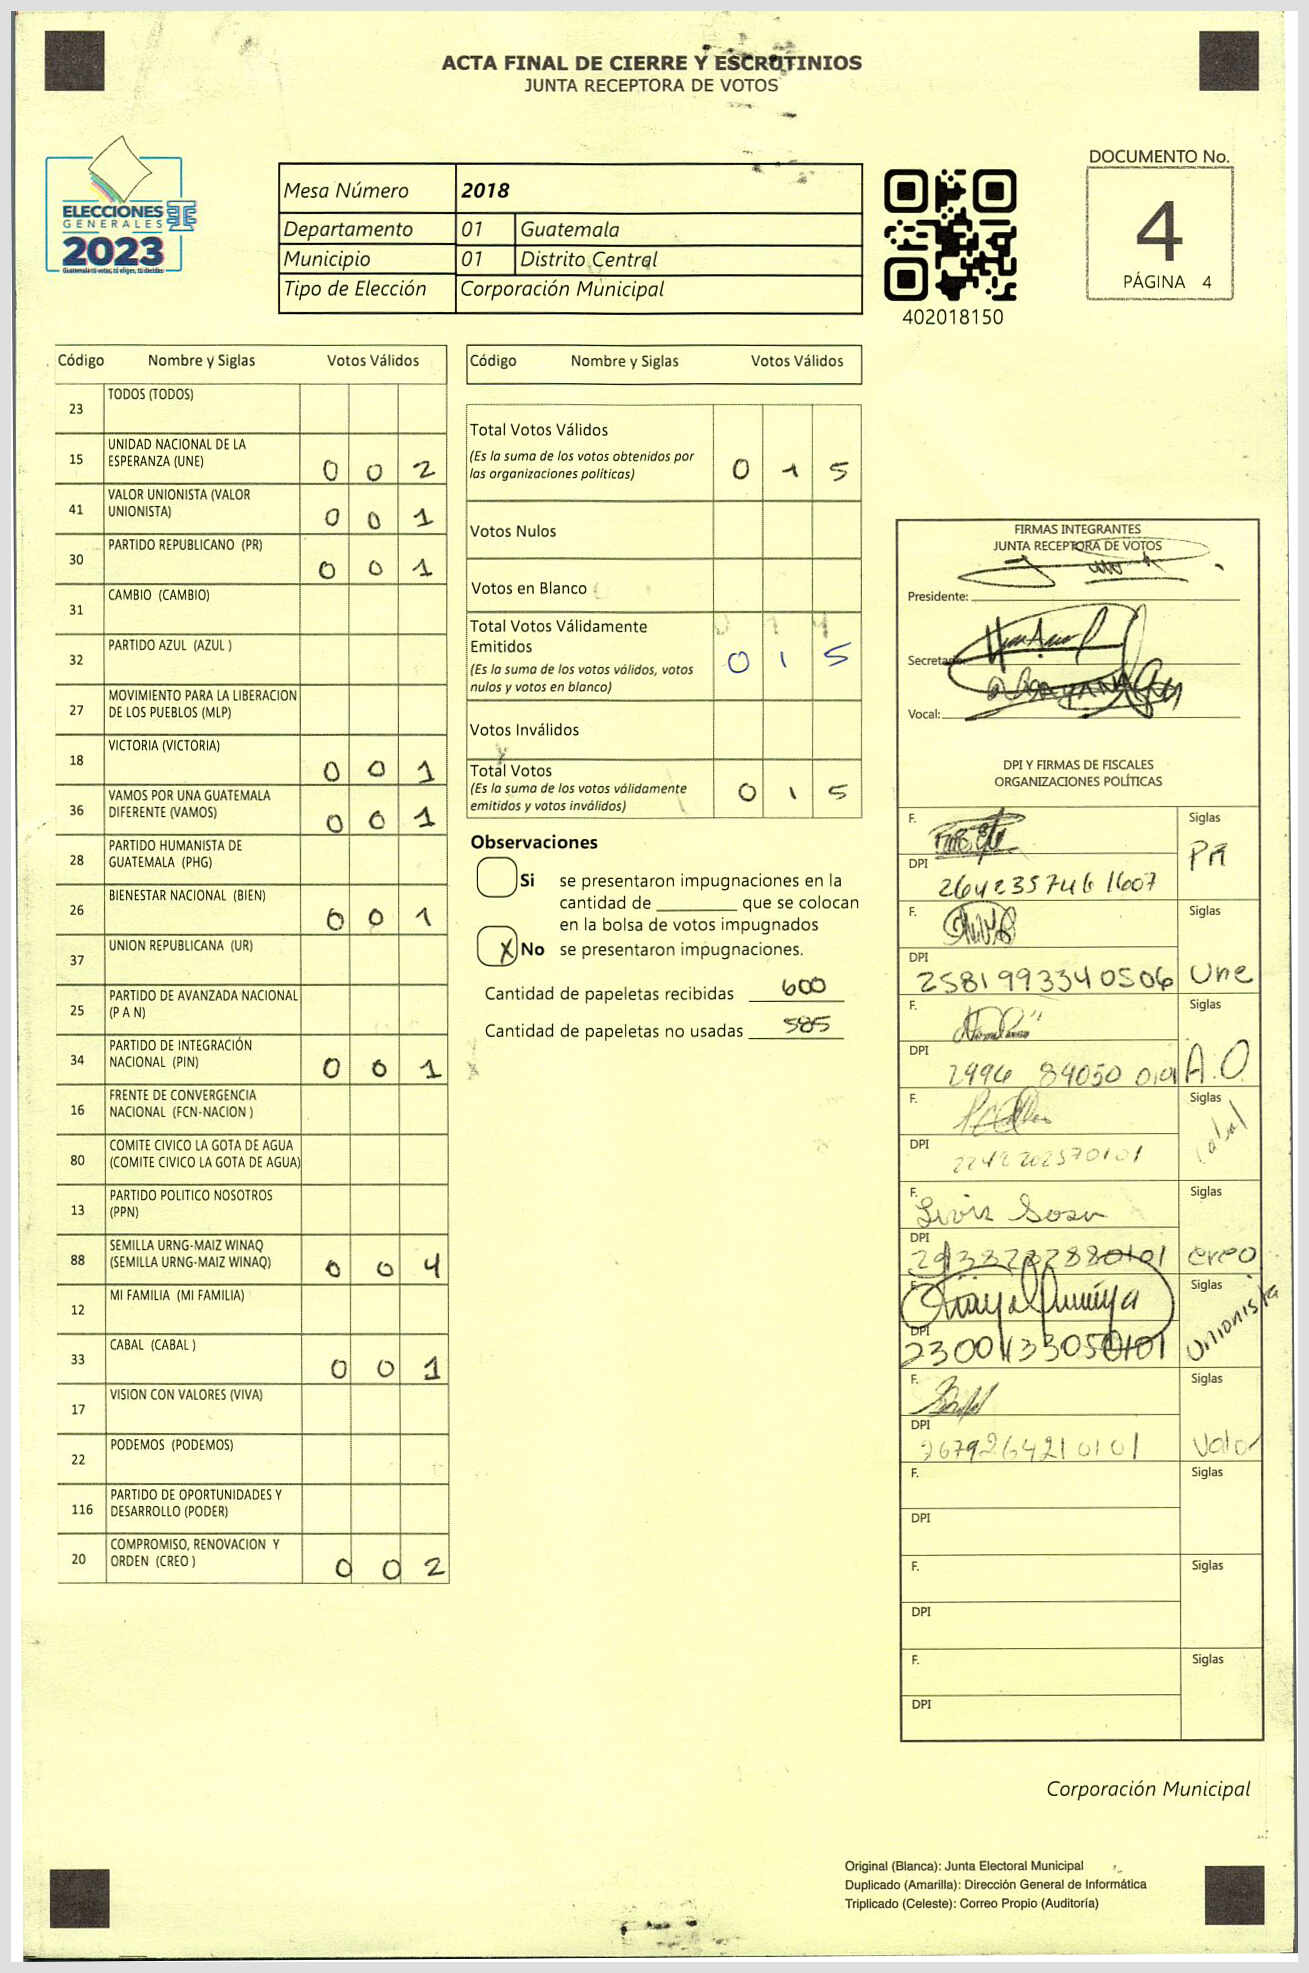 ACTA FINAL DE CIERRE Y ESCRUTINIOS
JUNTA RECEPTORA DE VOTOS
ELECCIONES
GENERALES
2023
Guatemala tú votas, tú eliges, tú decides
Mesa Número 2018
Departamento 01 Guatemala
Municipio 01 Distrito Central
Tipo de Elección Corporación Municipal
402018150
DOCUMENTO No.
4
PÁGINA 4
Código Nombre y Siglas Votos Válidos
23 TODOS (TODOS)
15 UNIDAD NACIONAL DE LA
ESPERANZA (UNE) 0 0 2
41 VALOR UNIONISTA (VALOR
UNIONISTA) 0 0 1
30 PARTIDO REPUBLICANO (PR) 0 0 1
31 CAMBIO (CAMBIO)
32 PARTIDO AZUL (AZUL )
27 MOVIMIENTO PARA LA LIBERACION
DE LOS PUEBLOS (MLP)
18 VICTORIA (VICTORIA) 0 0 1
36 VAMOS POR UNA GUATEMALA
DIFERENTE (VAMOS) 0 0 1
28 PARTIDO HUMANISTA DE
GUATEMALA (PHG)
26 BIENESTAR NACIONAL (BIEN) 0 0 1
37 UNION REPUBLICANA (UR)
25 PARTIDO DE AVANZADA NACIONAL
(P A N)
34 PARTIDO DE INTEGRACIÓN
NACIONAL (PIN) 0 0 1
16 FRENTE DE CONVERGENCIA
NACIONAL (FCN-NACION )
80 COMITE CIVICO LA GOTA DE AGUA
(COMITE CIVICO LA GOTA DE AGUA)
13 PARTIDO POLITICO NOSOTROS
(PPN)
88 SEMILLA URNG-MAIZ WINAQ
(SEMILLA URNG-MAIZ WINAQ) 0 0 4
12 MI FAMILIA (MI FAMILIA)
33 CABAL (CABAL ) 0 0 1
17 VISION CON VALORES (VIVA)
22 PODEMOS (PODEMOS)
116 PARTIDO DE OPORTUNIDADES Y
DESARROLLO (PODER)
20 COMPROMISO, RENOVACION Y
ORDEN (CREO ) 0 0 2
Código Nombre y Siglas Votos Válidos
Total Votos Válidos
(Es la suma de los votos obtenidos por
las organizaciones políticas) 0 1 5
Votos Nulos
Votos en Blanco
Total Votos Válidamente
Emitidos 0 1 5
(Es la suma de los votos válidos, votos
nulos y votos en blanco)
Votos Inválidos
Total Votos
(Es la suma de los votos válidamente
emitidos y votos inválidos) 0 1 5
Observaciones
Si se presentaron impugnaciones en la
cantidad de ________ que se colocan
en la bolsa de votos impugnados
X No se presentaron impugnaciones.
Cantidad de papeletas recibidas 600
Cantidad de papeletas no usadas 585
FIRMAS INTEGRANTES
JUNTA RECEPTORA DE VOTOS
Presidente:
Secretario:
Vocal:
DPI Y FIRMAS DE FISCALES
ORGANIZACIONES POLÍTICAS
F. Siglas
PR
DPI
2642357461607
F. Siglas
DPI
2581993340506 Une
F. Siglas
DPI
2996 89050 0101 A.O.
F. Siglas
Cabal
DPI
2242202570101
F. Siglas
Livis Sosa
DPI
2938282880101 creo
F. Siglas
Unionista
DPI
2300433050101
F. Siglas
DPI
2679264210101 Valor
F. Siglas
DPI
F. Siglas
DPI
F. Siglas
DPI
Corporación Municipal
Original (Blanca): Junta Electoral Municipal
Duplicado (Amarilla): Dirección General de Informática
Triplicado (Celeste): Correo Propio (Auditoría)